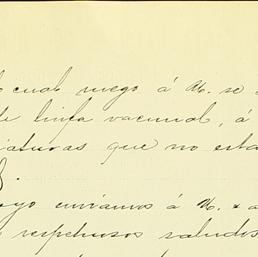 cual ruego á U. se
linfa vacunal, á
que no esta
enviamos á U.
respetuosos saludos